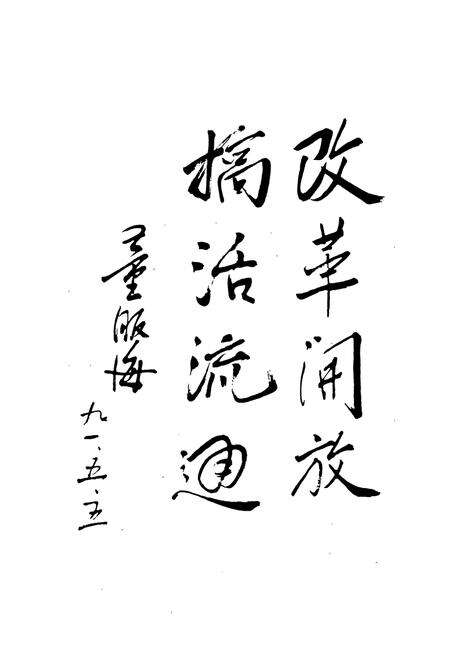 改革開放
搞活流通
九一、五、五